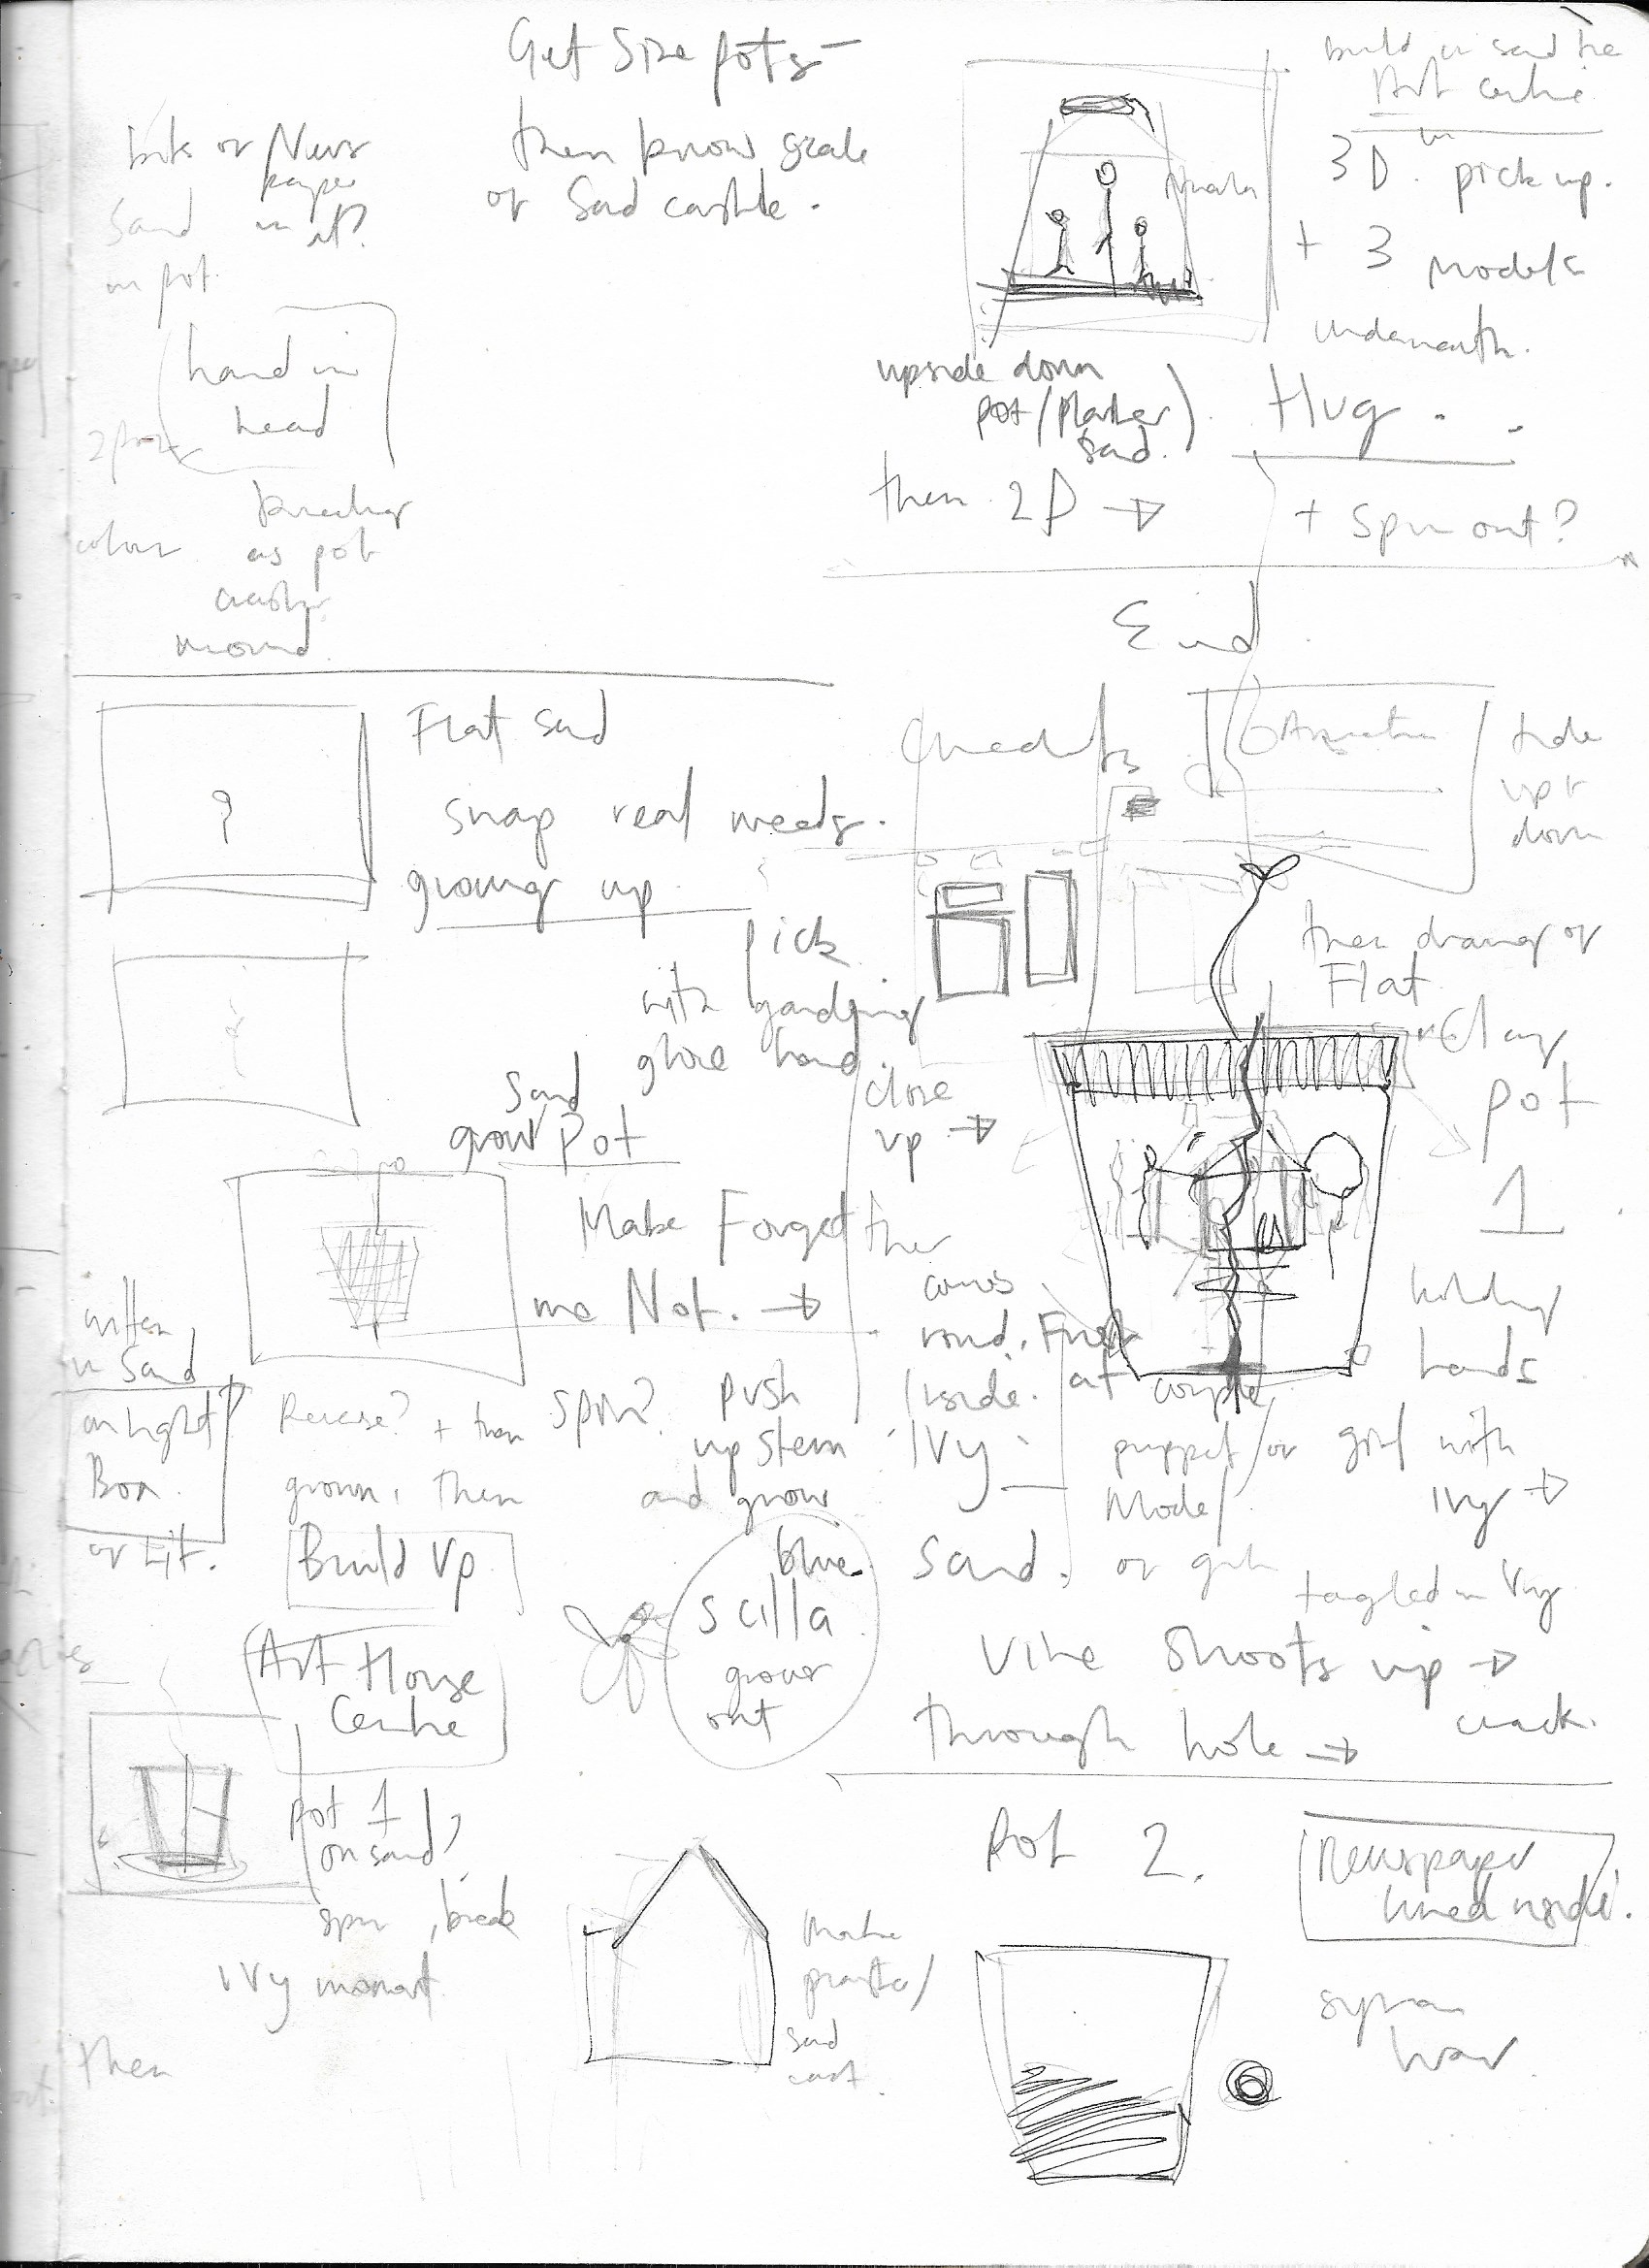 Get Size pots -
then know scale
of Sand castle.
bits of News
paper
Sand in it?
in pot
hand in
head
as pot
build in sand the
Art centre
3D in pick up.
+ 3 models
underneath.
upside down
pot/Plaster)
Sand.
Hug.
then 2D →
+ Spin out?
End
Flat Sand
snap real weeds.
growing up
pick
with gardening
glove hand
Sand
grow Pot
Make Forget
me Not. →
written
in Sand
on light
Box.
or
Reverse? + then Spin? push
up stem
grown, then
and grow
Build Up
Art House
Centre
blue
Scilla
grows
out
Pot 1
on sand?
spin, break
Ivy
then
Make
plaster/
sand
cast.
Credits
Animation
tide
up +
down
then drawing of
Flat
clay
Pot
1
close
up →
holding
hands
then
comes
round. First
inside. at couple
Ivy
puppet/or girl with
Model
Ivy →
Sand. or girl
tangled in Ivy
Vine Shoots up →
through hole →
crack.
Pot 2.
Newspaper
lined inside.
Syrian
War